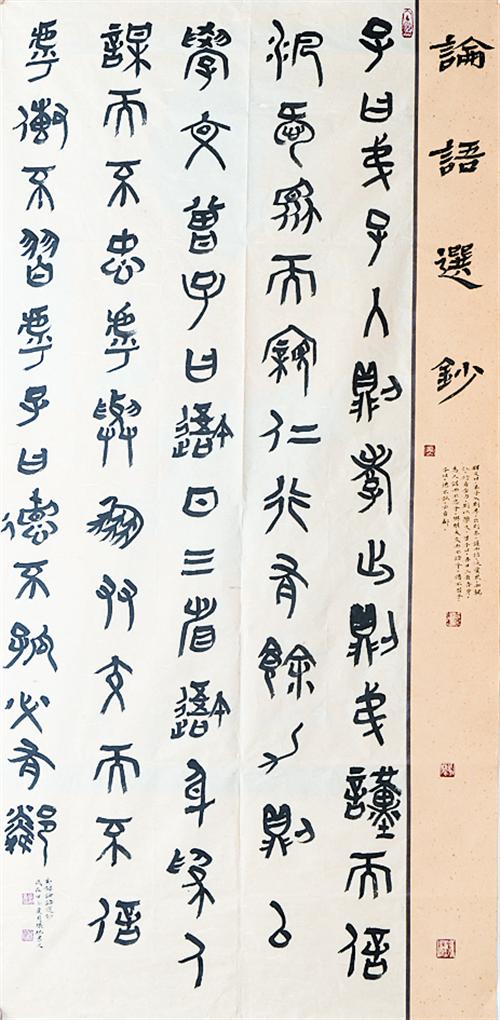 論語選鈔
子曰弟子入則孝出則弟謹而信
汎愛眾而親仁行有餘力則以
學文曾子曰吾日三省吾身為人
謀而不忠乎與朋友交而不信
乎傳不習乎子曰德不孤必有鄰